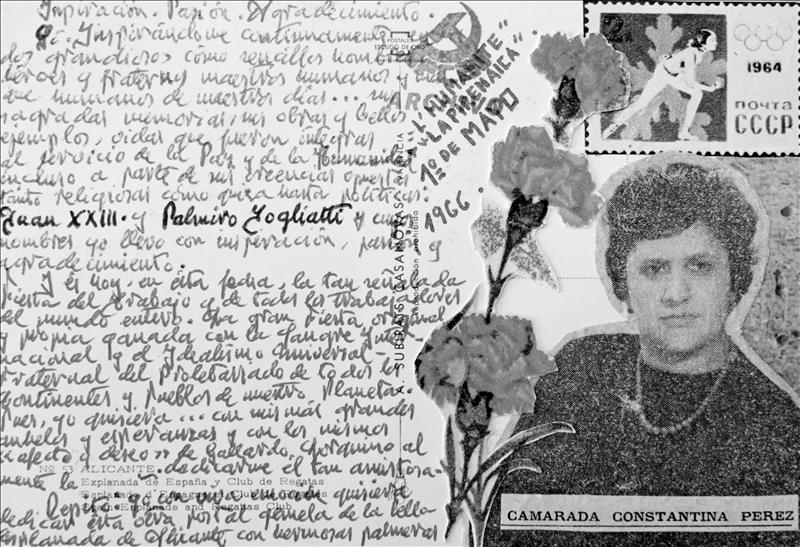 Inspiración. Pasión. Agradecimiento.
Yo. Inspirándome continuamente en
dos grandiosos como sencillos hombres
héroes y fraternos maestros humanos
que humanos de nuestros días... sus
sagradas memorias, sus obras y bellos
ejemplos, vidas que fueron íntegras
al servicio de la Paz y de la Humanidad
incluso a parte de sus creencias opuestas
tanto religiosas como quizá hasta políticas.
Juan XXIII. y Palmiro Togliatti y cuyos
nombres yo llevo con inspiración, pasión y
agradecimiento.
Y es hoy, en esta fecha, la tan señalada
fiesta del trabajo y de todos los trabajadores
del mundo entero. Una gran fiesta original
y propia ganada con la sangre Inter-
nacional y el Idealismo Universal-
fraternal del Proletariado de todos los
continentes y pueblos de nuestro planeta.
Pues, yo quisiera... con mis más grandes
anhelos y esperanzas y con los mismos
"afecto y deseo" de Gallardo, Chorquino al
dedicarme él tan amistosa-
mente la
Repito- yo con viva emoción quisiera
dedicar esta otra postal gemela de la bella
Esplanada de Alicante con hermosas palmeras
Nº 53 ALICANTE.
Explanada de España y Club de Regatas
Esplanade d'Espagne et Club de Regates
Spain Esplanade and Regattas Club
POSTALES
ESCUDO DE ORO
A. SUBIRATS CASANOVAS. VALENCIA
Reproducción prohibida
"L'HUMANITE"
"LA PIRENAICA".
1º DE MAYO
1966.
2K
1964
ПОЧТА
СССР
CAMARADA CONSTANTINA PEREZ